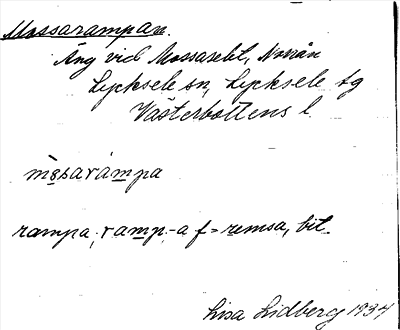 Mossarampan.
Äng vid Mossaselet, Norrån
Lycksele sn, Lycksele tg
Västerbottens l.
mòsaràmpa
rampa; ramp-a f = remsa, bit.
Lisa Lidberg 1934